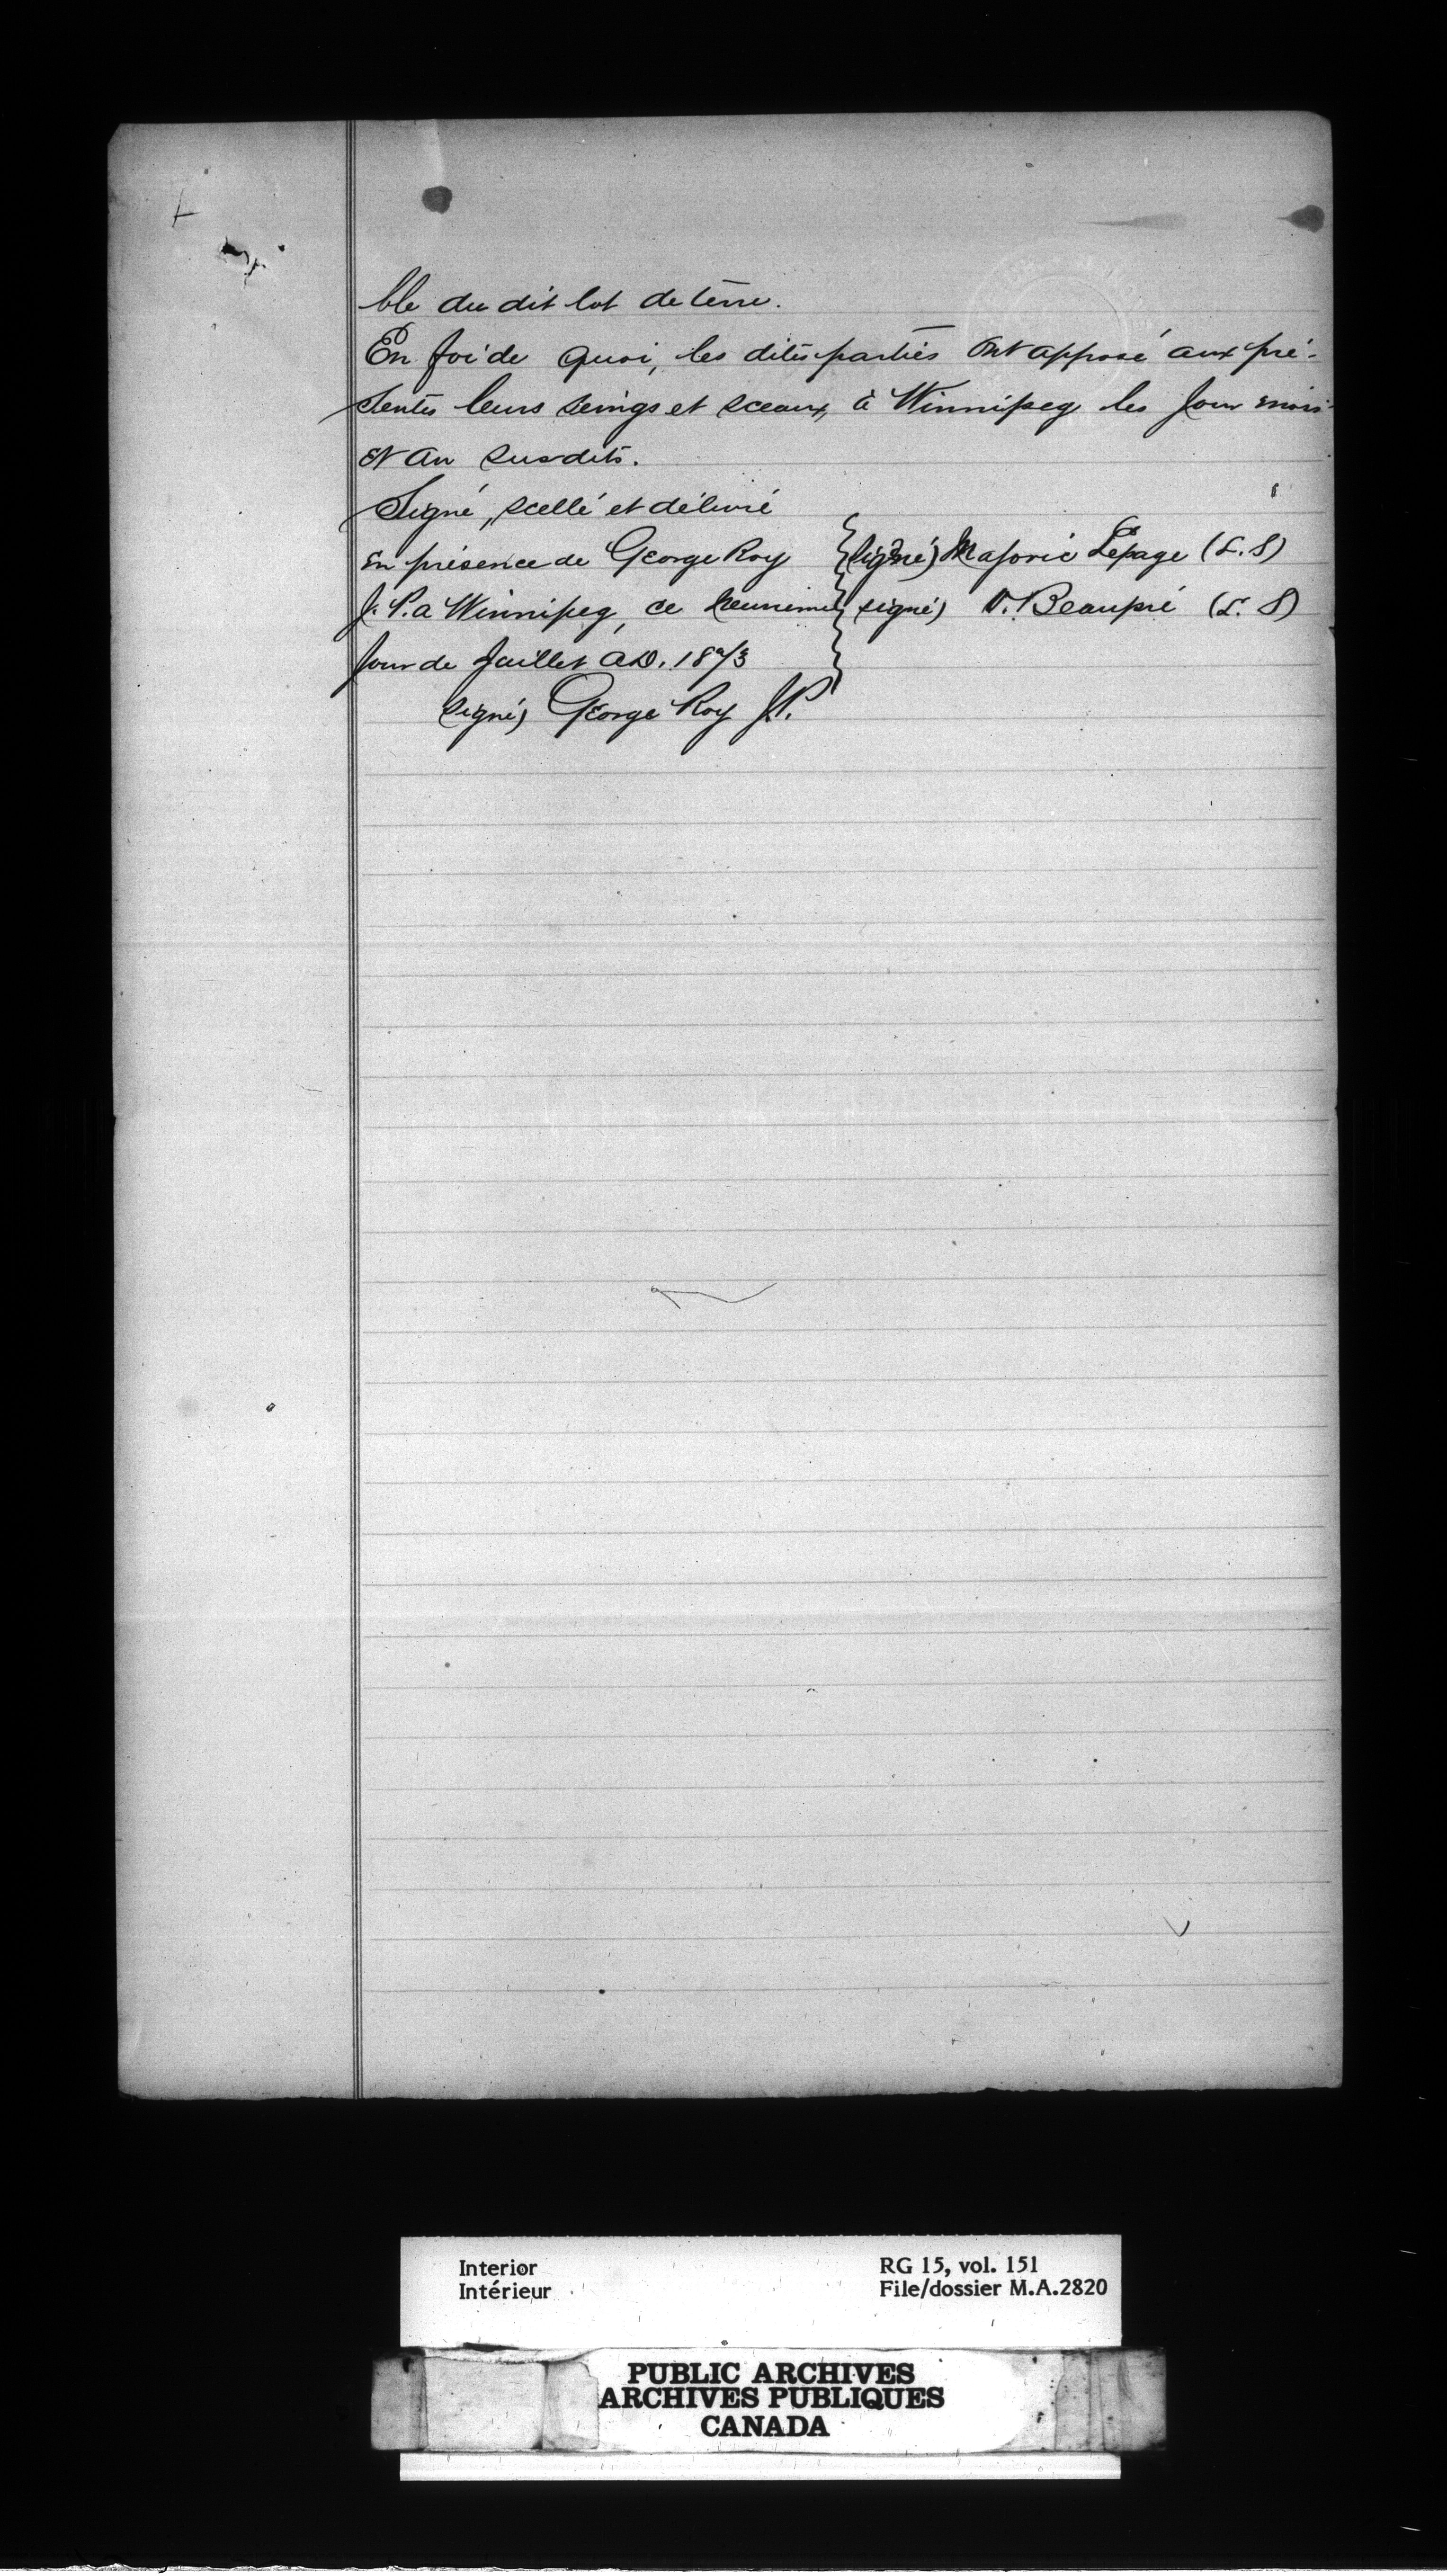 ble du dit lot de terre.
En foi de quoi, les dites parties ont apposé aux pré-
sentes leurs seings et sceaux, à Winnipeg les jour mois
et an susdits.
Signé, scellé et délivré
en présence de George Roy } (signé) Majoric Lepage (L.S)
J.P. a Winnipeg, ce neuvieme } signé) Beaupré (L.S)
jour de Juillet A.D. 1873
signé) George Roy J.P.
Interior RG 15, vol. 151
Intérieur File/dossier M.A.2820
PUBLIC ARCHIVES
ARCHIVES PUBLIQUES
CANADA